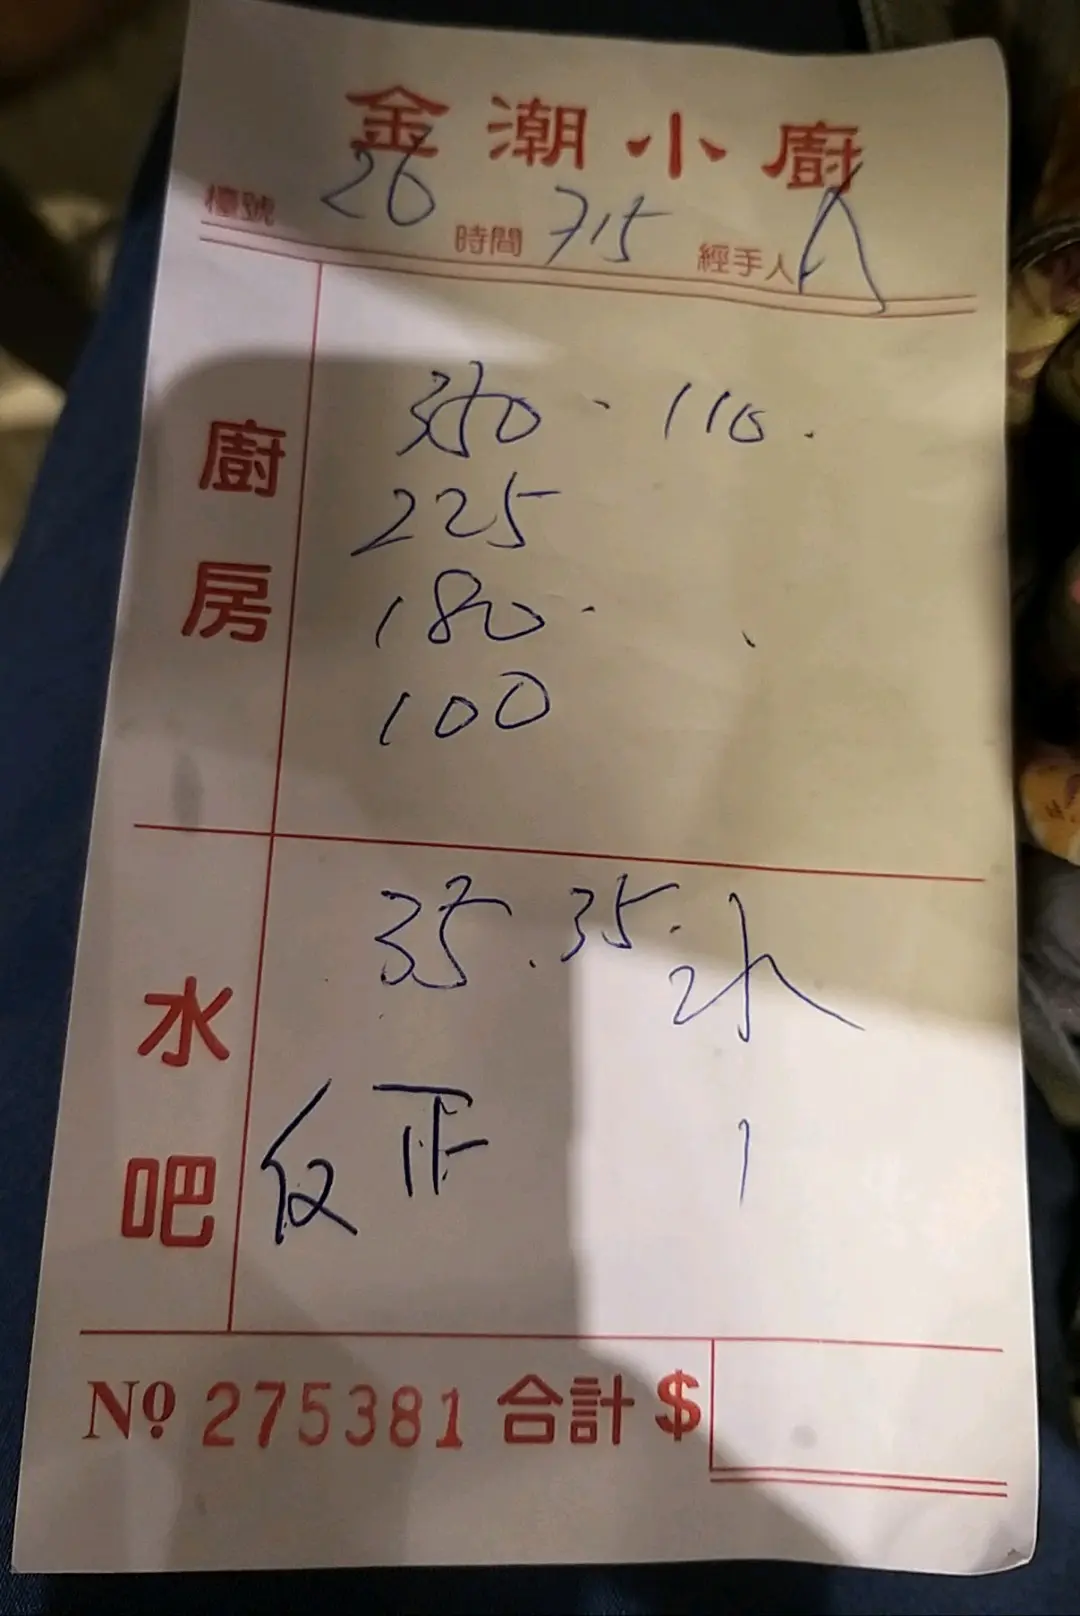 金潮小廚
檯號 26 時間 715 經手人
廚房
350 . 110 .
225
180 .
100
水吧
35 . 35 . 水
正
No 275381 合計 $